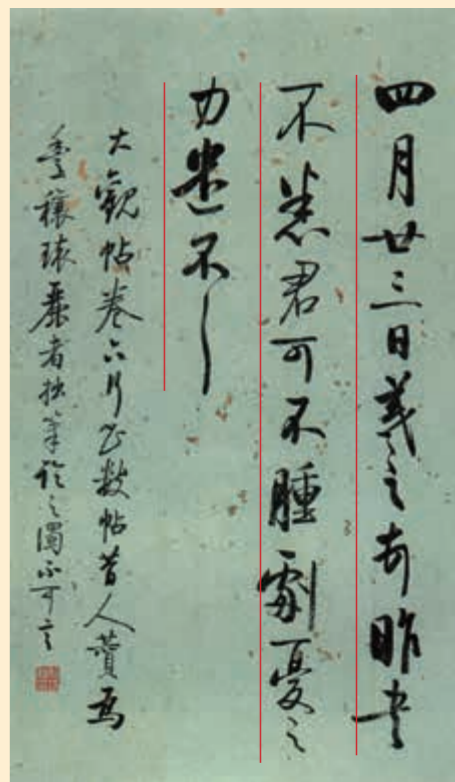 四月廿三日羲之昨書
不悉君可不腫劇憂之
力遣不
大觀帖卷六行書數帖昔人贊為
秀穠麗者拙筆臨之濁不可言